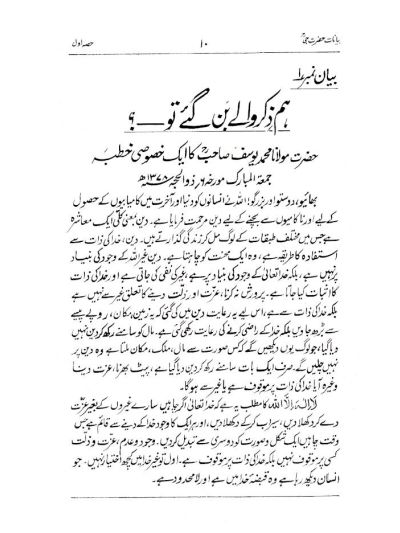 بیانات حضرت جیؒ ۱۰ حصہ اول
بیان نمبر ۱
ہم ذکر والے بن گئے تو ــــ ؟
حضرت مولانا محمد یوسف صاحبؒ کا ایک خصوصی خطبہ
جمعۃ المبارک مورخہ ۶ر ذوالحجہ ۱۳۷۸ھ
بھائیو، دوستو اور بزرگو! اللہ نے انسانوں کو دنیا اور آخرت میں کامیابیوں کے حصول
کے لیے اور ناکامیوں سے بچنے کے لیے دین مرحمت فرمایا ہے۔ دین کلی ایک معاشرہ
ہے جس میں مختلف طبقات کے لوگ مل کر زندگی گذارتے ہیں۔ دین، خدا کی ذات سے
استفادہ کا طریقہ ہے، وہ ایک محنت کو چاہتا ہے۔ دین غیر اللہ کے وجود کی بنیاد
پر نہیں ہے، بلکہ خدا تعالیٰ کے وجود کی بنیاد پر ہے، غیر کی نفی کی جاتی ہے اور خدا کی ذات
کا اثبات کیا جاتا ہے۔ پرورش نہ کرنا، عزت اور ذلت دینے کا تعلق غیر سے نہیں ہے
بلکہ خدا کی ذات سے ہے، اس لیے یہ رعایت دین میں کی گئی کہ یہ زمین، مکان، روپے پیسے
سے بڑھ جاویں بلکہ خدا کے راضی کرنے کی رعایت رکھی گئی ہے۔ مال کو سامنے رکھ کر دین نہیں
دیا گیا، جو لوگ یوں دیکھیں گے کہ کس صورت سے مال، ملک، مکان ملتا ہے وہ دین پر
نہیں چلیں گے۔ صرف ایک بات سامنے رکھ کر دین دیا گیا ہے، پیٹ بھرنا، عزت دینا
وغیرہ آیا خدا کی ذات پر موقوف ہے یا غیر سے ہوگا۔
لا الٰہ الا اللہ کا مطلب یہ ہے کہ خدا تعالیٰ اگر چاہیں سارے غیروں کے بغیر عزت
دے کر دکھلا دیں، سیراب کر کے دکھلا دیں، اور ہر ایک کا وجود خدا کے دینے سے قائم ہے جس
وقت چاہیں ایک شکل و صورت کو دوسری سے تبدیل کر دیں۔ وجود و عدم، عزت و ذلت
کسی پر موقوف نہیں بلکہ خدا کی ذات پر موقوف ہے۔ اول تو غیر خدا میں کچھ اختیار نہیں۔ جو
انسان دیکھ رہا ہے وہ قبضۂ خدا میں ہے اور لا محدود ہے۔